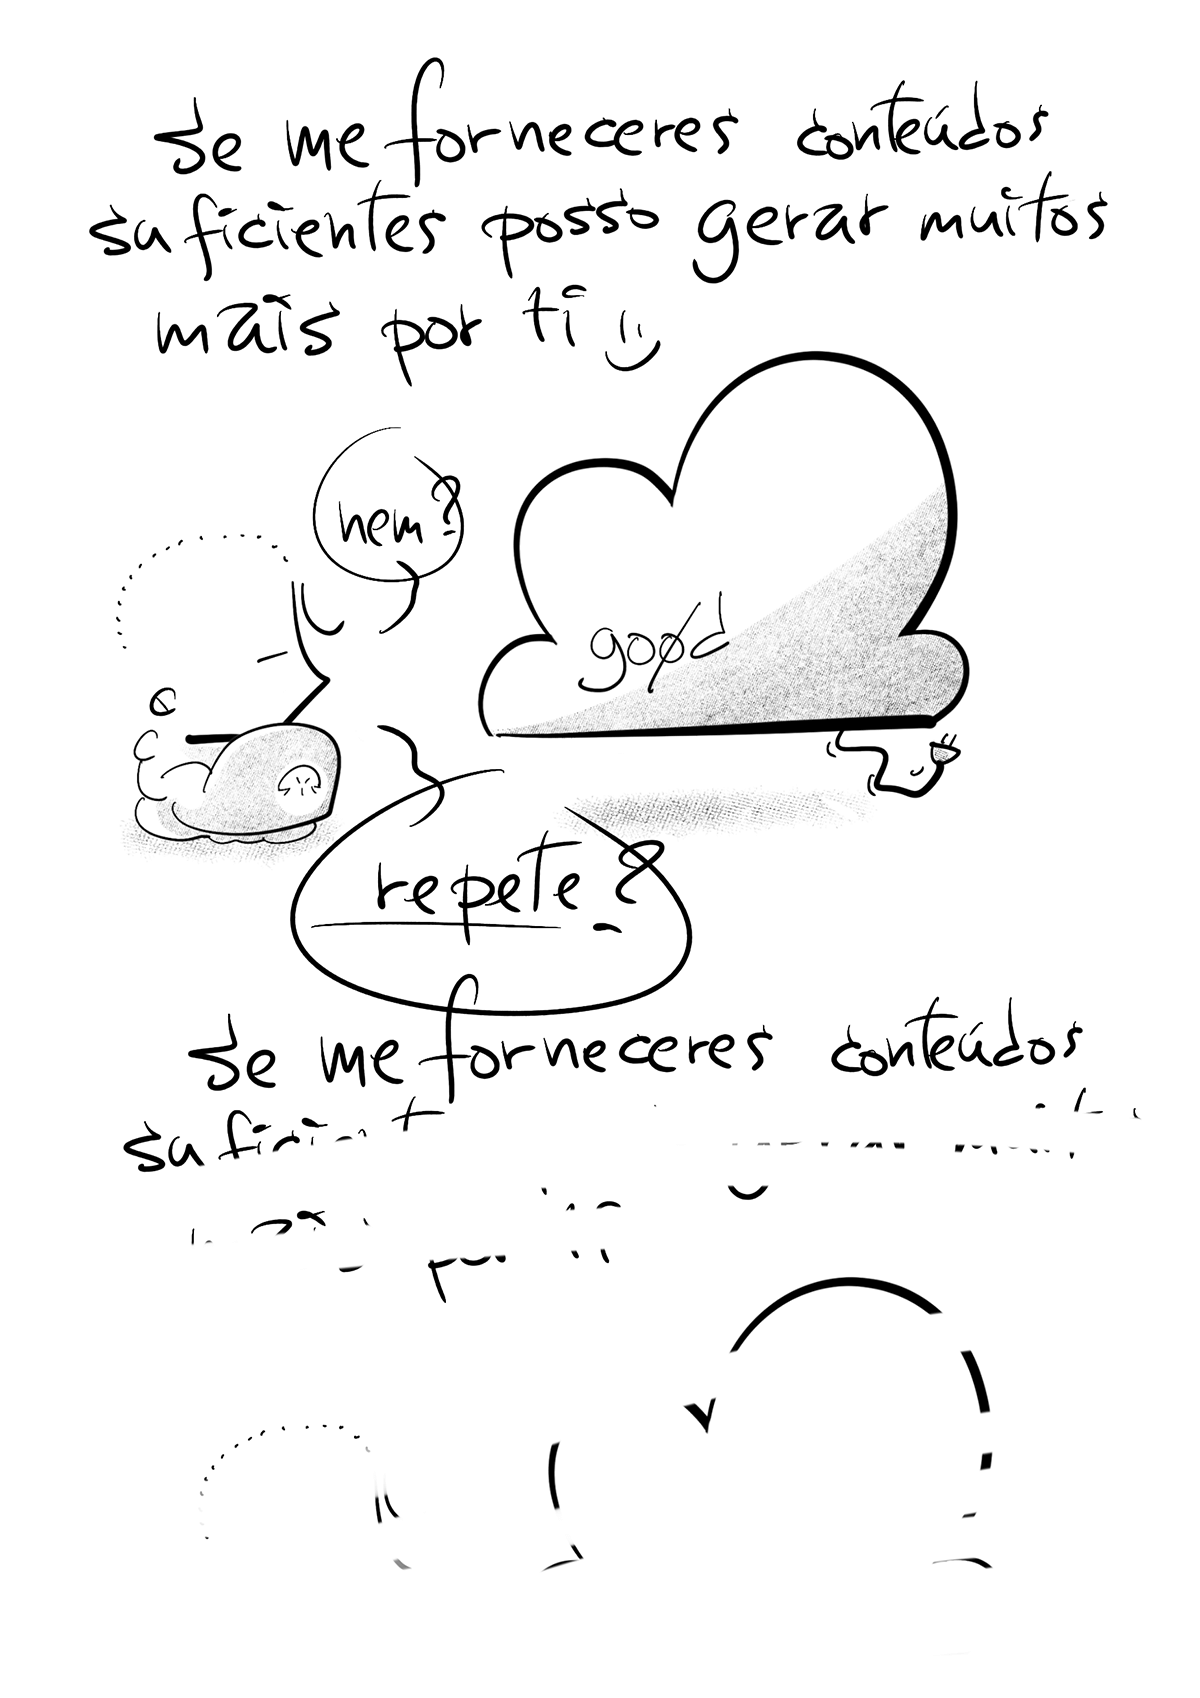 Se me forneceres conteúdos
suficientes posso gerar muitos
mais por ti
hem?
good
repete?
Se me forneceres conteúdos